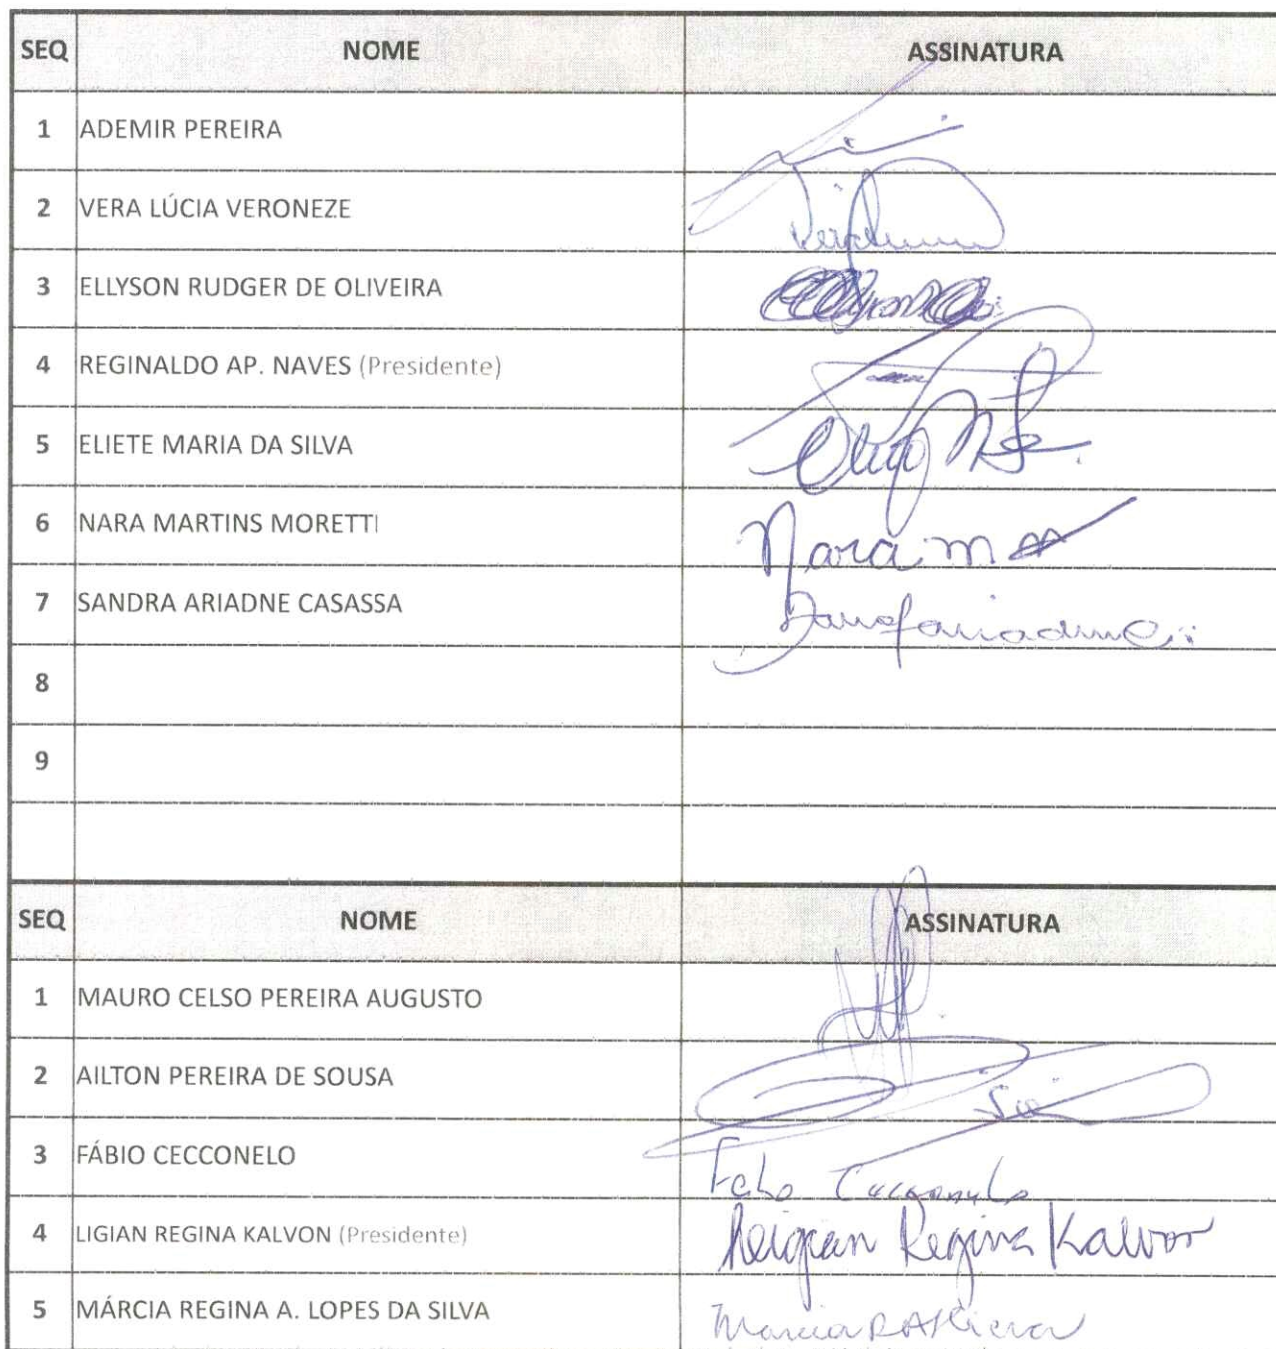 SEQ NOME ASSINATURA
1 ADEMIR PEREIRA
2 VERA LÚCIA VERONEZE
3 ELLYSON RUDGER DE OLIVEIRA
4 REGINALDO AP. NAVES (Presidente)
5 ELIETE MARIA DA SILVA
6 NARA MARTINS MORETTI Nara m
7 SANDRA ARIADNE CASASSA
8
9
SEQ NOME ASSINATURA
1 MAURO CELSO PEREIRA AUGUSTO
2 AILTON PEREIRA DE SOUSA
3 FÁBIO CECCONELO
4 LIGIAN REGINA KALVON (Presidente) Regina Kalvon
5 MÁRCIA REGINA A. LOPES DA SILVA Marcia